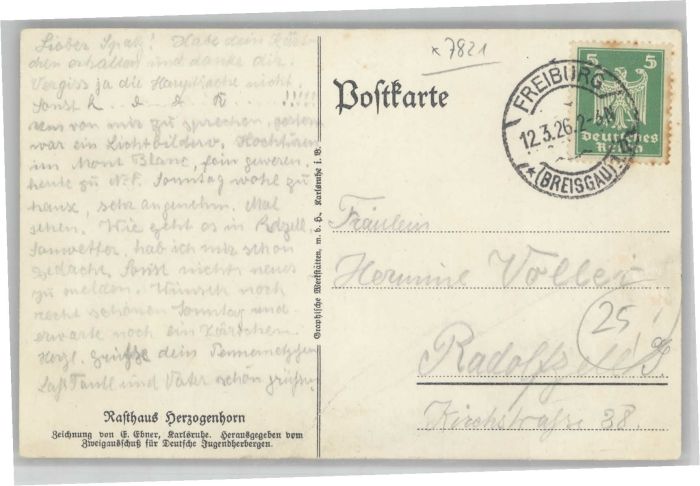 Lieber Spatz! Habe dein Kärt-
chen erhalten und danke dir.
Vergiss ja die Hauptsache nicht
Sonst !!!!!
von mir zu sprechen, gestern
war ein Lichtbilderv. Hochturen
im Mont Blanc, fein gewesen.
heute zu Sonntag wohl zu
hause, sehr angenehm. Mal
sehen. Wie geht es in Rdzell
Sauwetter, hab ich mir schon
gedacht. Sonst nichts neues
zu melden. Wünsch noch
recht schönen Sonntag und
erwarte noch ein Kärtchen.
Herzl. Grüsse dein
Laß Tante und Vater schön grüßen
Rasthaus Herzogenhorn
Zeichnung von E. Ebner, Karlsruhe. Herausgegeben vom
Zweigausschuß für Deutsche Jugendherbergen.
Graphische Werkstätten, m. b. H., Karlsruhe i. B.
* 7821
Postkarte
5 5
Deutsches
Reich
FREIBURG
12.3.26.
*(BREISGAU)
Fräulein
Hermine Voller
25
Radolfzell
Kirchstrasse 38.